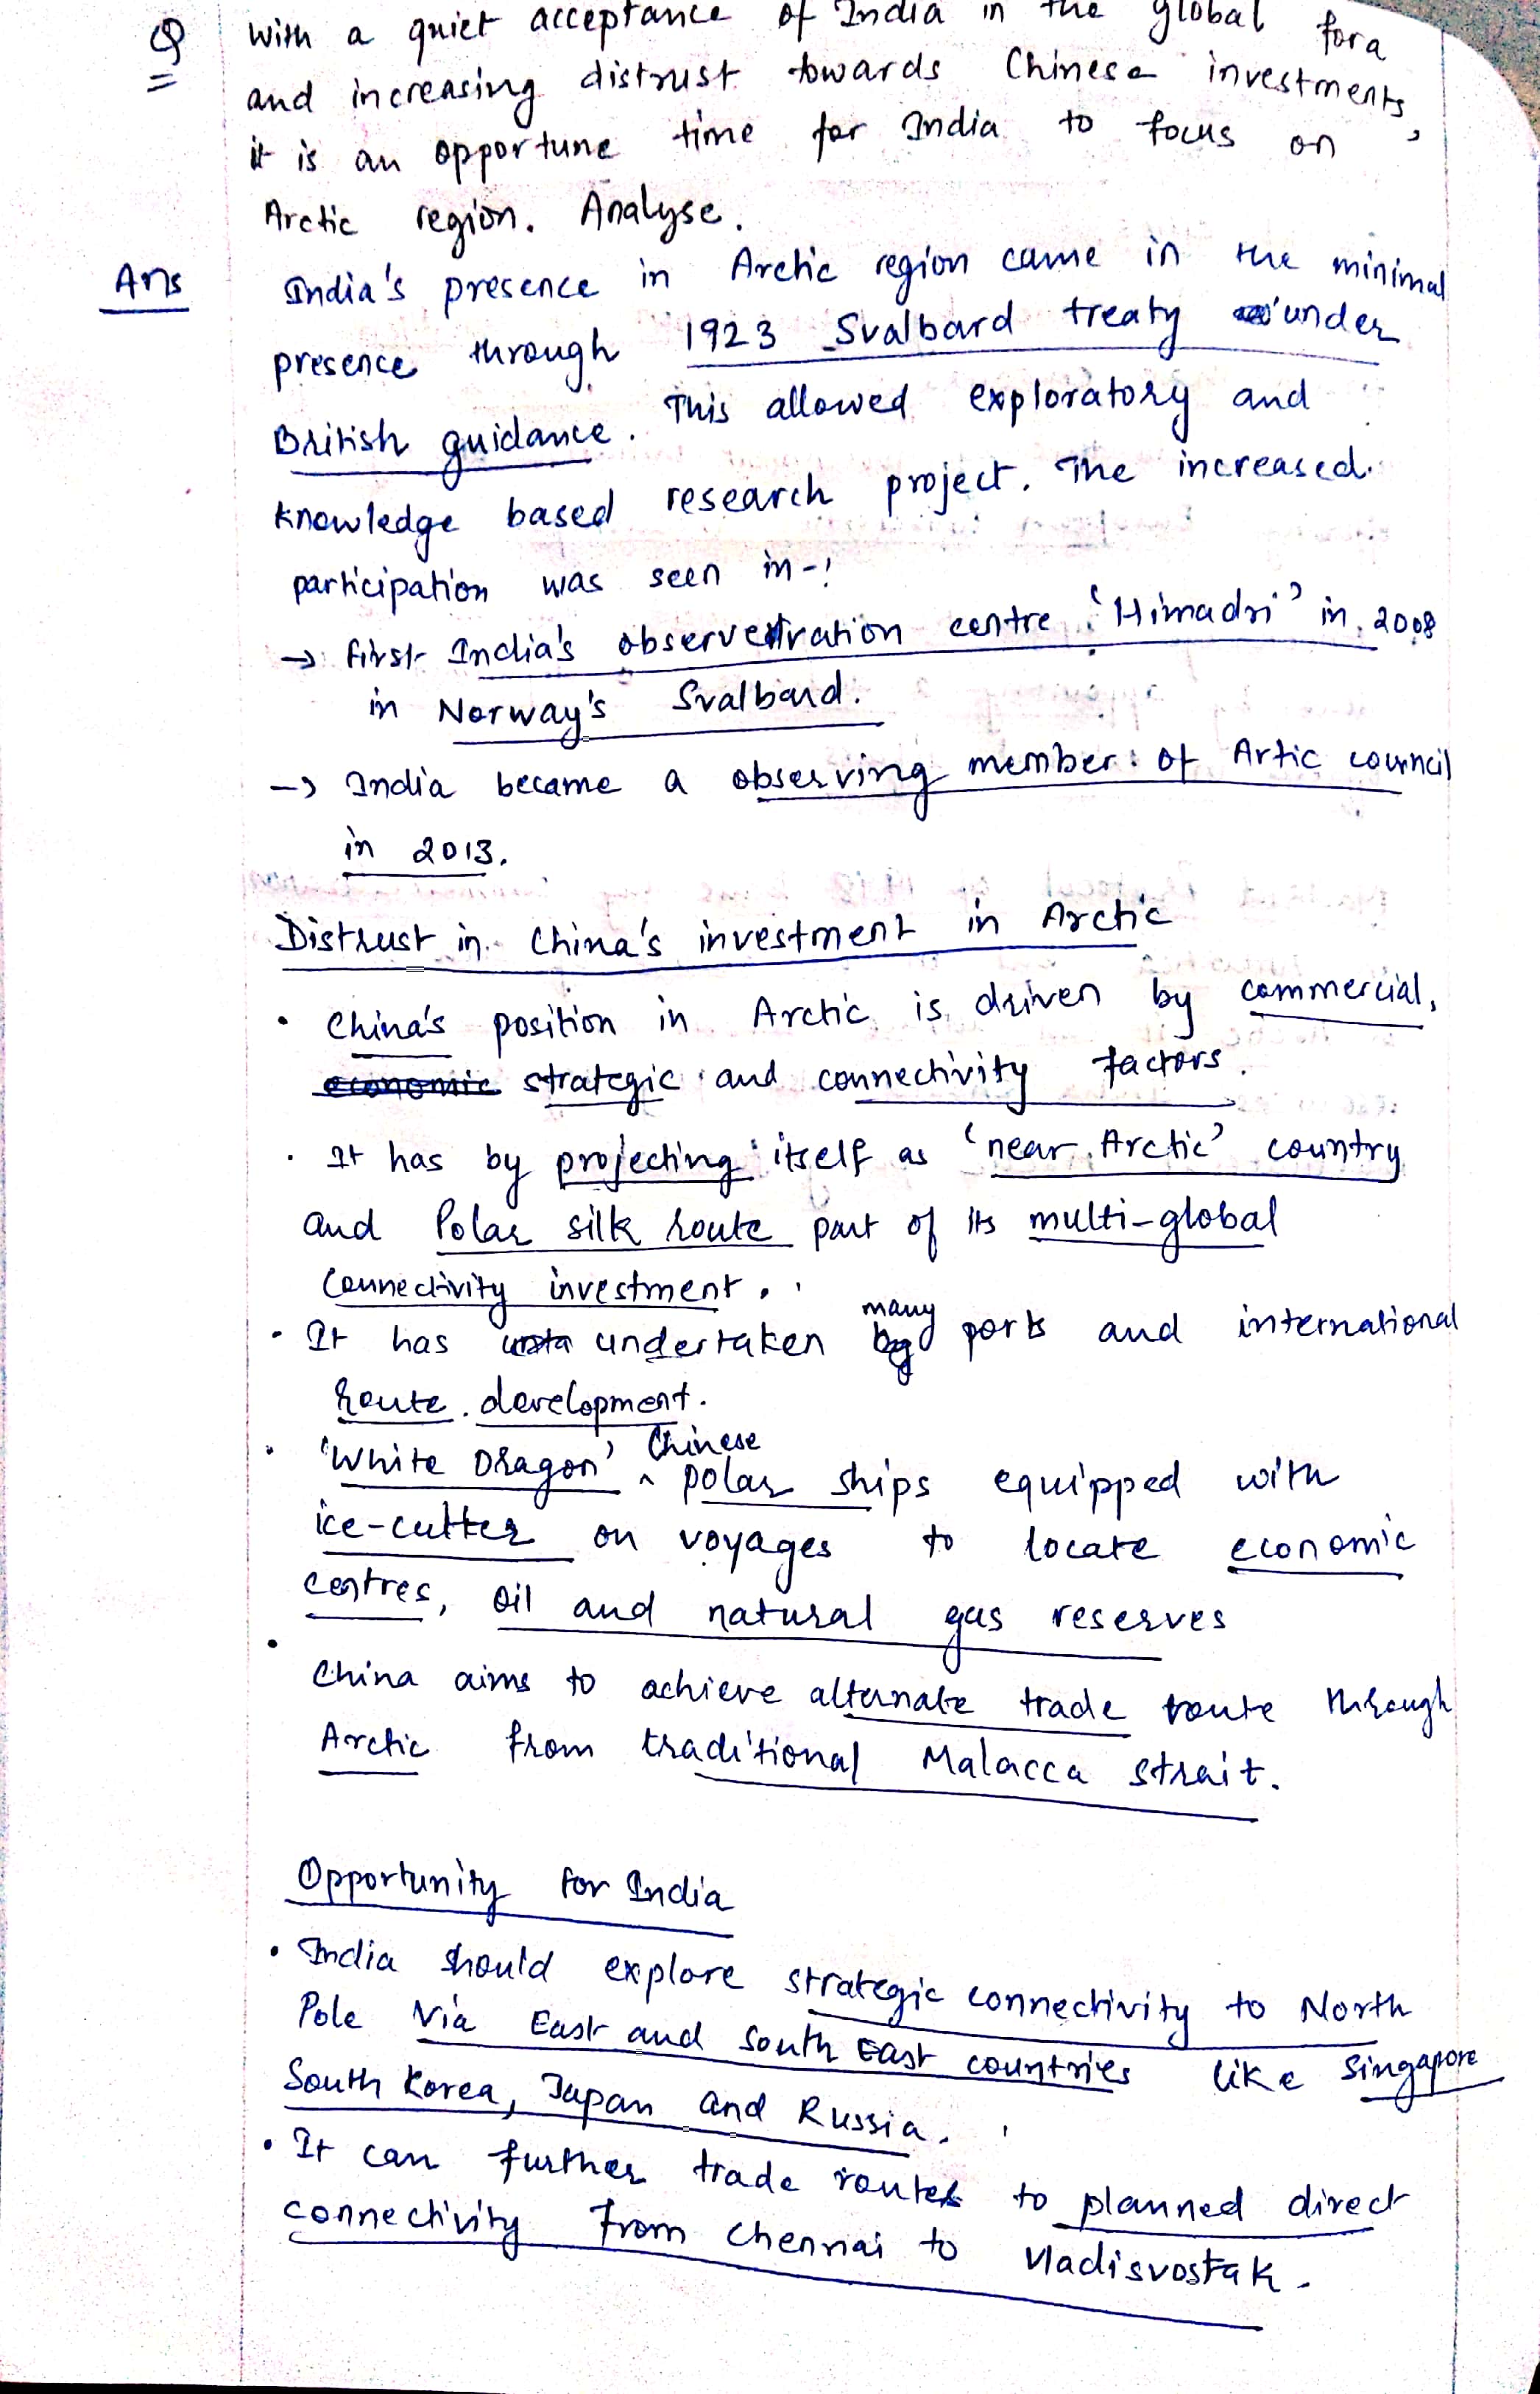 Q With a quiet acceptance of India in the global fora
and increasing distrust towards Chinese investments,
it is an opportune time for India to focus on
Arctic region. Analyse.
Ans India's presence in Arctic region came in the minimal
presence through 1923 Svalbard treaty under
British guidance. This allowed exploratory and
knowledge based research project. The increased
participation was seen in -:
→ first India's observation centre 'Himadri' in 2008
in Norway's Svalbard.
→ India became a observing member of Artic council
in 2013.
Distrust in China's investment in Arctic
• China's position in Arctic is driven by commercial,
economic strategic and connectivity factors.
• It has by projecting itself as 'near Arctic' country
and Polar silk route part of its multi-global
connectivity investment.
• It has undertaken many ports and international
route development.
• 'White Dragon' Chinese polar ships equipped with
ice-cutter on voyages to locate economic
centres, oil and natural gas reserves
• China aims to achieve alternate trade route through
Arctic from traditional Malacca strait.
Opportunity for India
• India should explore strategic connectivity to North
Pole via East and South East countries like Singapore
South Korea, Japan and Russia.
• It can further trade routes to planned direct
connectivity from Chennai to Vladisvostak.